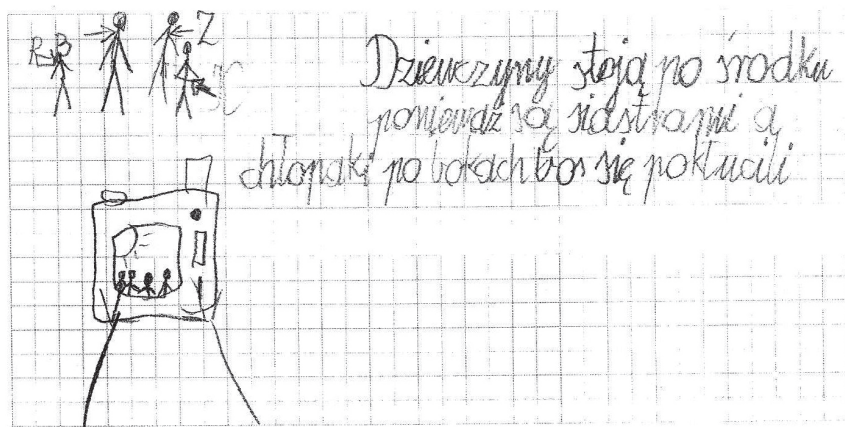 R B Z
JC
Dziewczyny stoją po środku
poniewarz są siostrami a
chłopaki po bokach bo się pokłucili